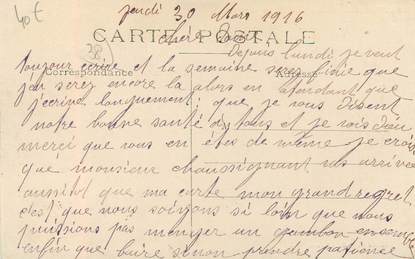 40€
Jeudi 30 Mars 1916
CARTE POSTALE
chers
Depuis lundi je veut
toujour ecrire et la semaine que
Correspondance
Adresse
serez encore la alors en atandant que
j'ecrive longuement; que je vous disent
notre bonne santé a tous et je vois Dieu
merci que vous en etes de même je crois
que monsieur chaussignant est arrivee
aussitot que ma carte mon grand regret
c'est que nous soiyons si loin que nous
puissions pas manger un jambon ensemble
enfin que faire sinon prendre patience